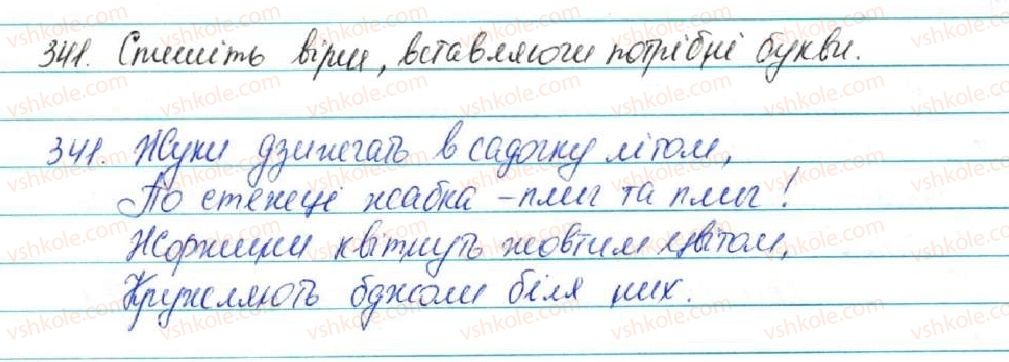 341. Спишіть вірш, вставляючи потрібні букви.
341. Жуки дзижчать в садочку літом,
По стежеці жабка - плиг та плиг!
Жоржини квітнуть жовтим цвітом,
Кружляють бджоли біля них.